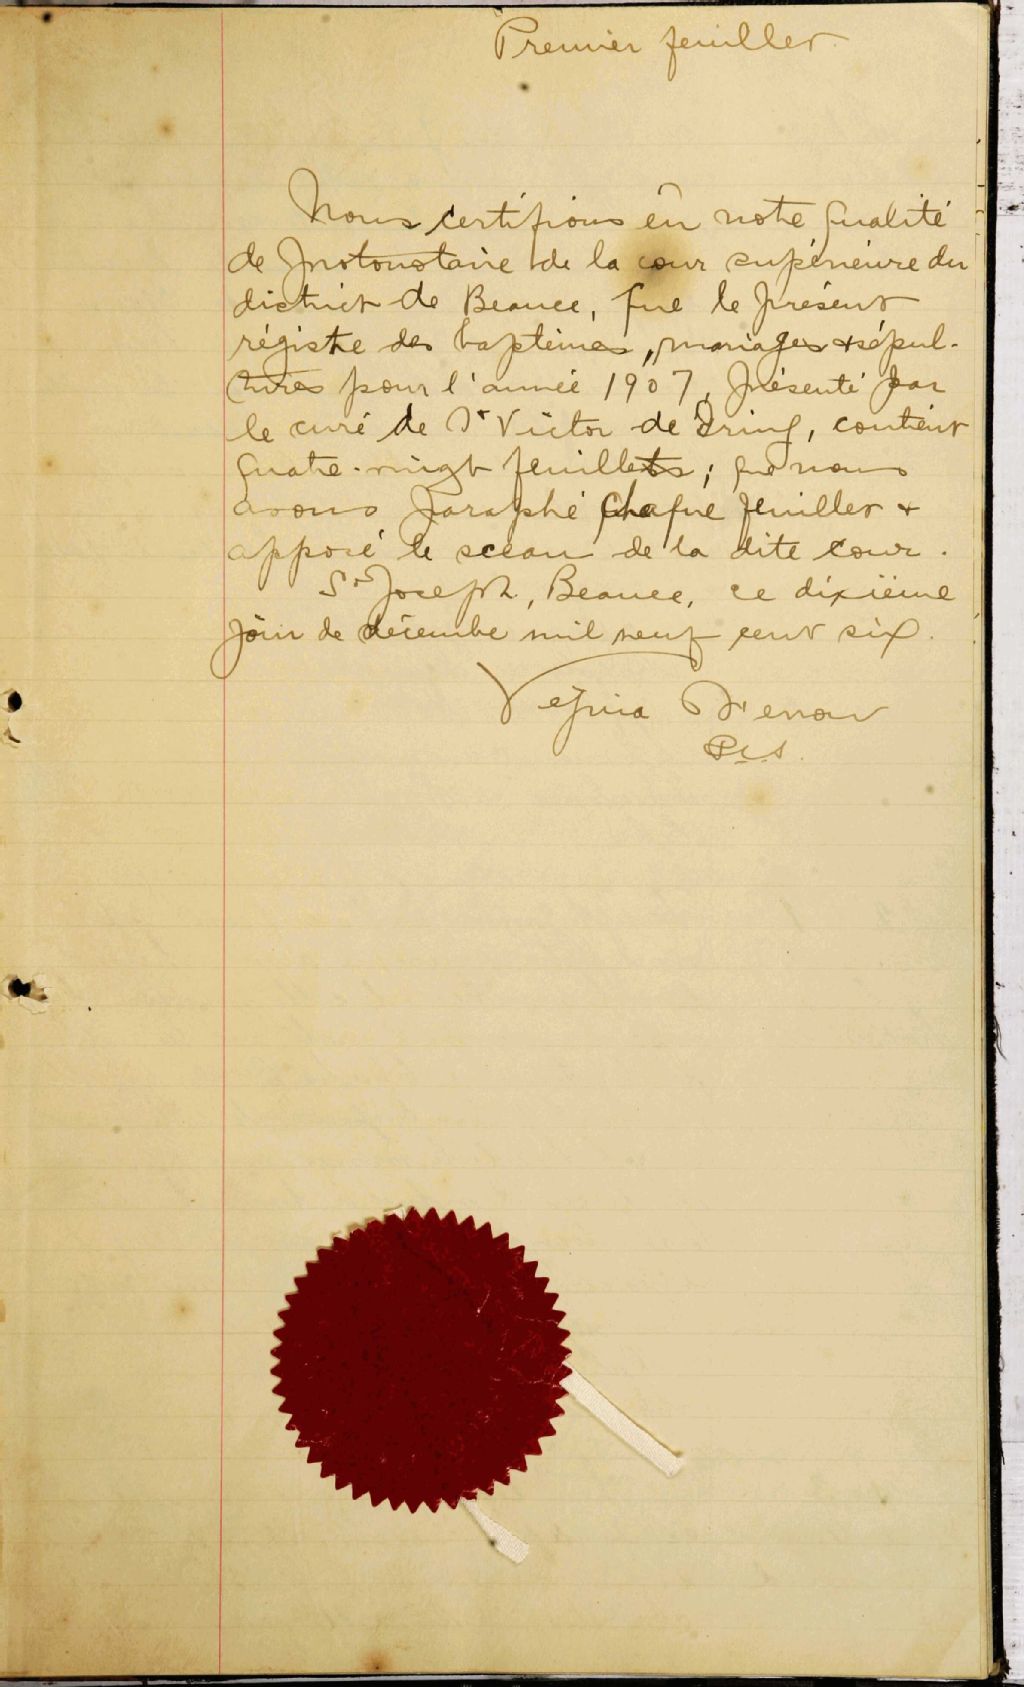 Premier feuillet.
Nous certifions en notre qualité
de protonotaire de la cour supérieure du
district de Beauce, que le présent
régistre des baptêmes, mariages & sépul-
tures pour l'année 1907, présenté par
le curé de St Victor de Tring, contient
quatre-vingt feuillets; que nous
avons paraphé chaque feuillet &
apposé le sceau de la dite cour.
St Joseph, Beauce, ce dixième
jour de décembre mil neuf cent six.
Vézina
P.C.S.